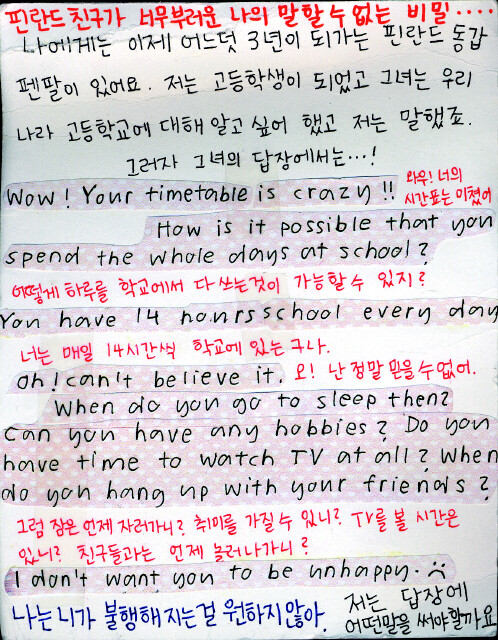 핀란드친구가 서무부러운 나의 말할수없는 비밀....
나에게는 이제 어느덧 3년이 되가는 핀란드 동갑
펜팔이 있어요. 저는 고등학생이 되었고 그녀는 우리
나라 고등학교에 대해 알고 싶어 했고 저는 말했죠.
그러자 그녀의 답장에서는...!
Wow! Your timetable is crazy!! 와우! 너의
시간표는 미쳤어
How is it possible that you
spend the whole days at school?
어떻게 하루를 학교에서 다 쓰는것이 가능할 수 있지?
You have 14 hours school every day
너는 매일 14시간씩 학교에 있는구나.
oh! can't believe it. 오! 난 정말 믿을수없어.
When do you go to sleep then?
Can you have any hobbies? Do you
have time to watch TV at all? When
do you hang up with your friends?
그럼 잠은 언제 자러가니? 취미를 가질 수 있니? TV를 볼 시간은
있니? 친구들과는 언제 놀러나가니?
I don't want you to be unhappy. :(
나는 니가 불행해지는걸 원하지않아. 저는 답장에
어떤말을 써야할까요